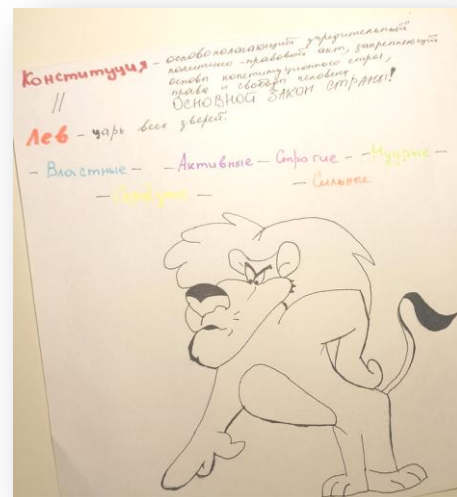 Конституция - основополагающий учредительный
политико-правовой акт, закрепляющий
основы конституционного строя,
права и свободы человека
ОСНОВНОЙ ЗАКОН СТРАНЫ!
//
Лев - царь всех зверей.
- Властные - - Активные - Строгие - - Мудрые -
- Сильные